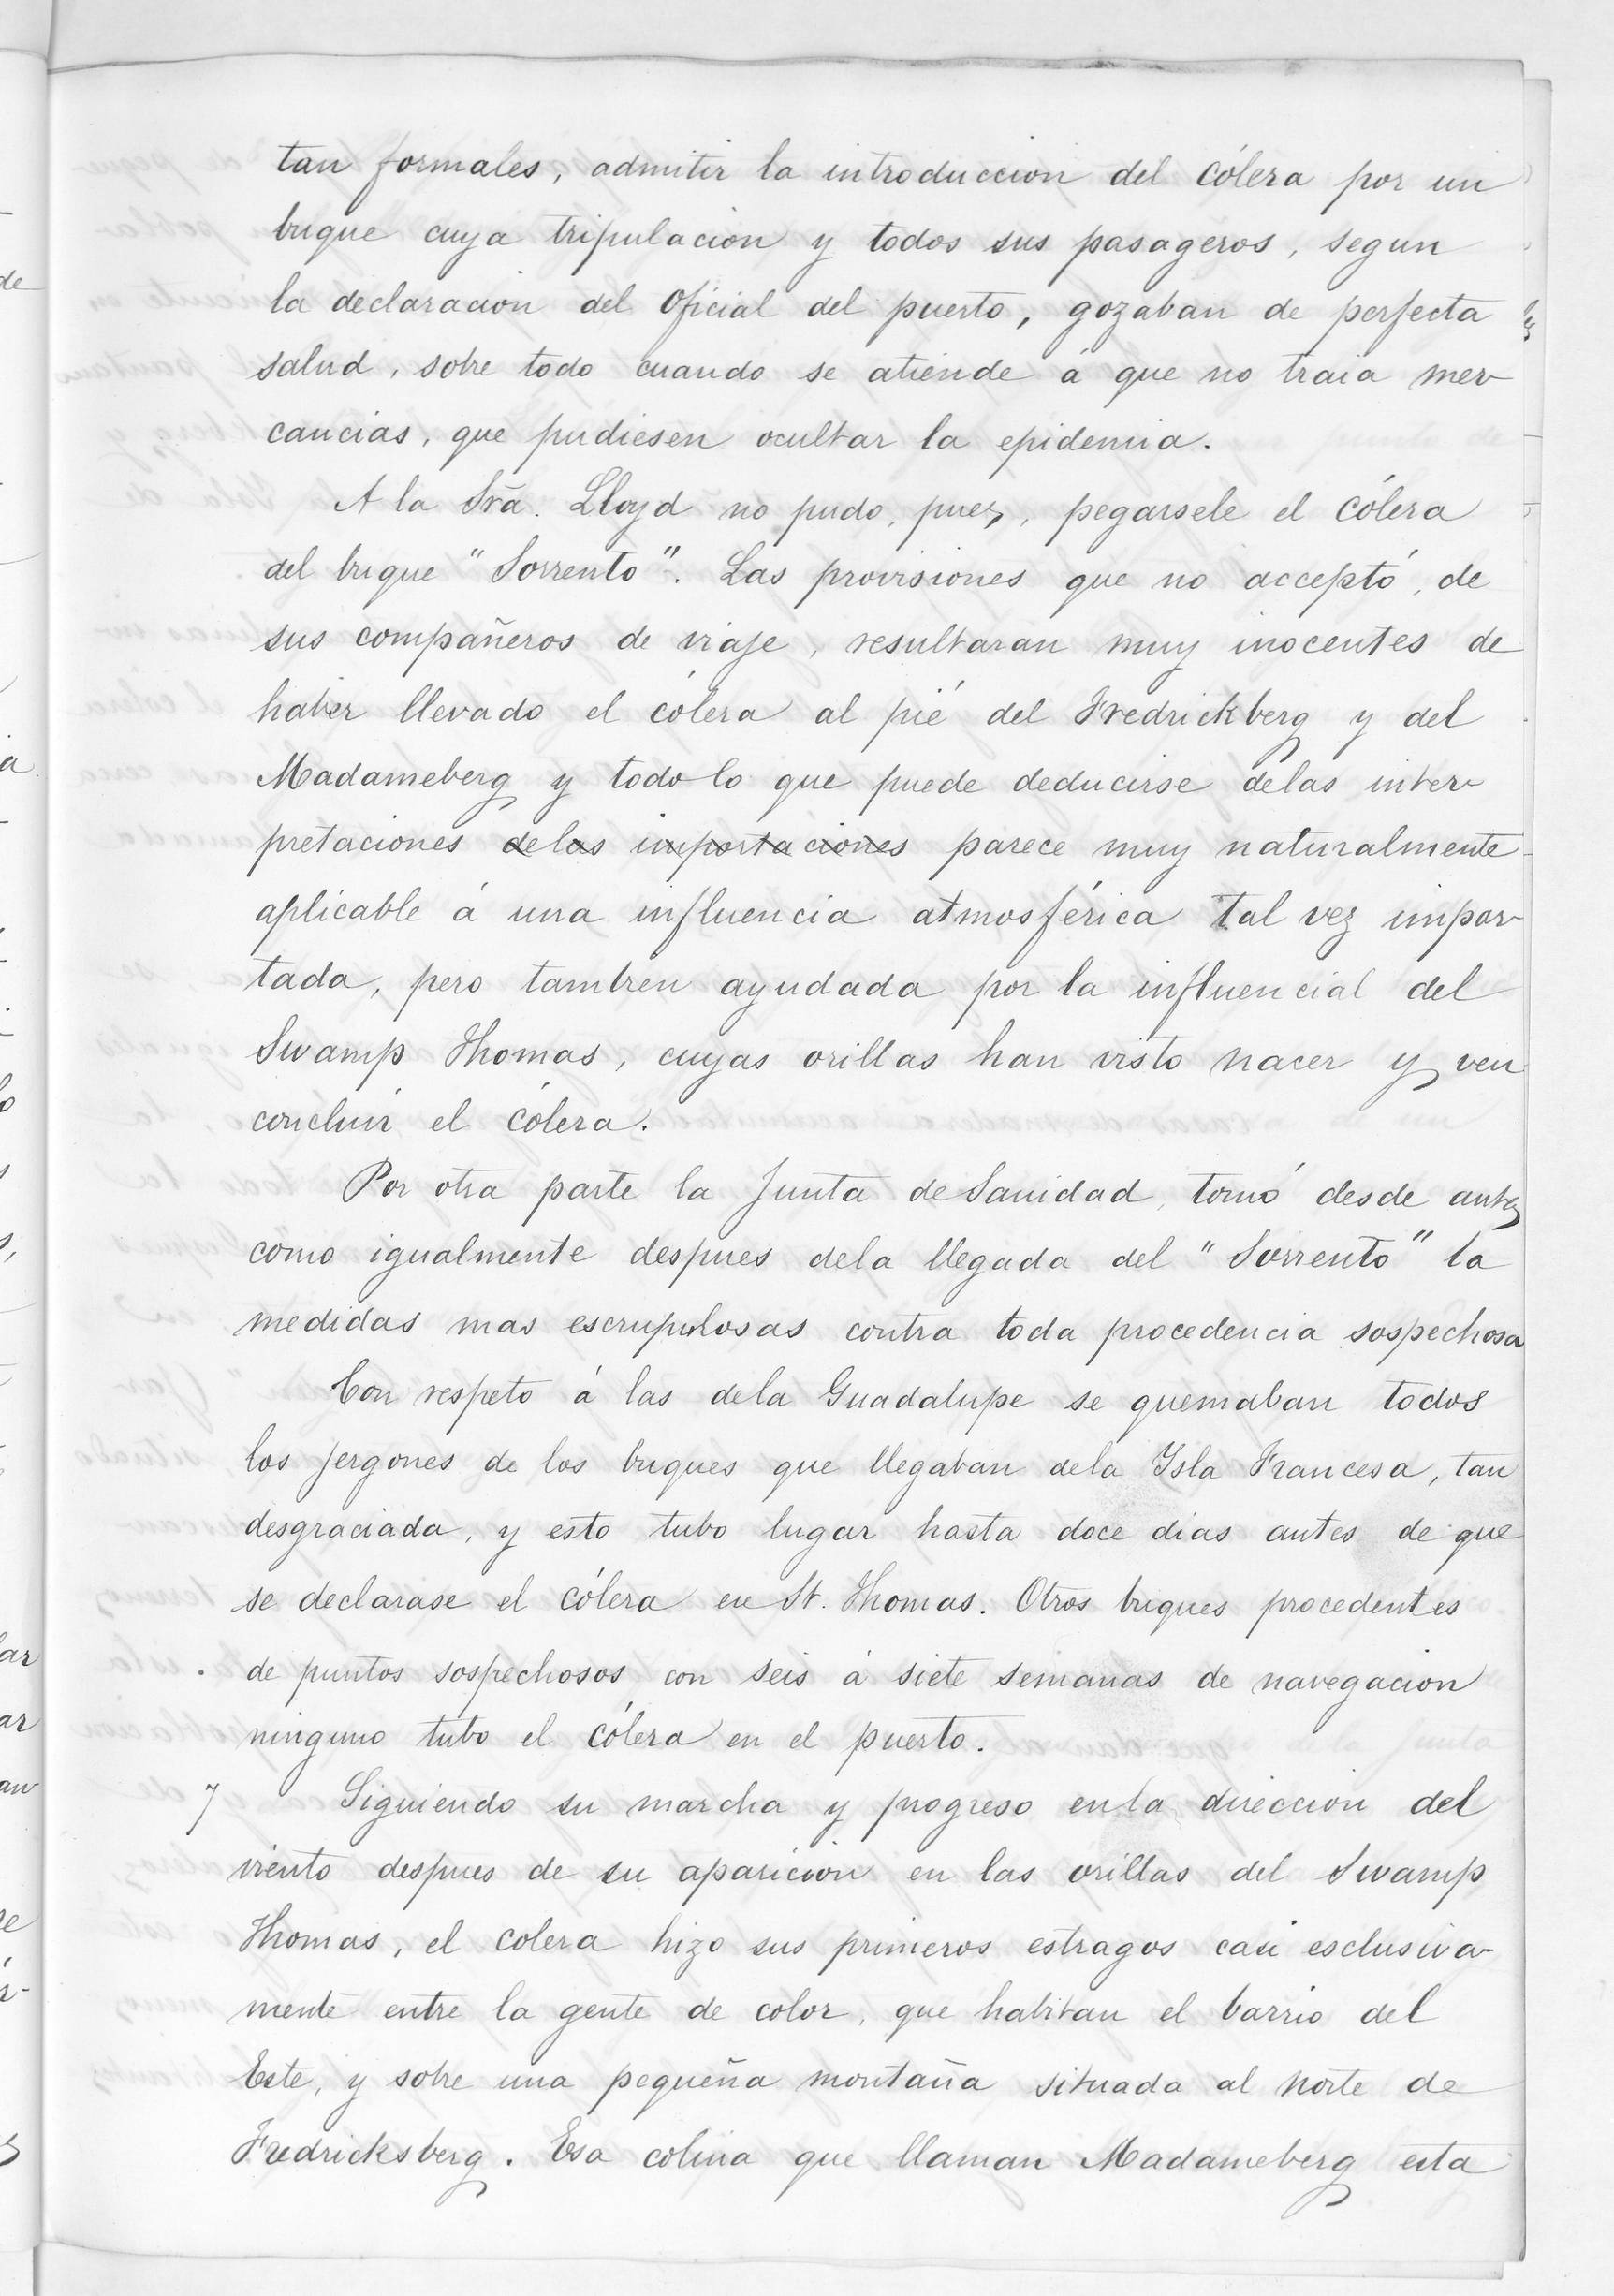 tan formales, admitir la introduccion del cólera por un
buque cuya tripulacion y todos sus pasageros, segun
la declaracion del Oficial del puerto, gozaban de perfecta
salud, sobre todo cuando se atiende á que no traia mer-
cancias, que pudiesen ocultar la epidemia.
A la Sra. Lloyd no pudo, pues, pegarsele el cólera
del buque "Sorrento". Las provisiones que no acceptó, de
sus compañeros de viaje, resultaran muy inocentes de
haber llevado el cólera al pié del Fredrickberg y del
Madameberg y todo lo que puede deducirse delas inter-
pretaciones delas importaciones parece muy naturalmente
aplicable á una influencia atmosférica tal vez impor-
tada, pero tambien ayudada por la influencial del
Swamp Thomas, cuyas orillas han visto nacer y ven
concluir el cólera.
Por otra parte la Junta de Sanidad, tomó desde antes
como igualmente despues dela llegada del "Sorrento" la
medidas mas escrupulosas contra toda procedencia sospechosa
Con respeto á las dela Guadalupe se quemaban todos
los jergones de los buques que llegaban dela Ysla Francesa, tan
desgraciada, y esto tubo lugar hasta doce dias antes de que
se declarase el cólera en St. Thomas. Otros buques procedentes
de puntos sospechosos con seis á siete semanas de navegacion
ninguno tubo el cólera en el puerto.
7 Siguiendo su marcha y progreso en la direccion del
viento despues de su aparicion en las orillas del Swamp
Thomas, el colera hizo sus primeros estragos casi esclusiva-
mente entre la gente de color, que habitan el barrio del
Este, y sobre una pequeña montaña situada al norte de
Fredricksberg. Esa colina que llaman Madameberg esta